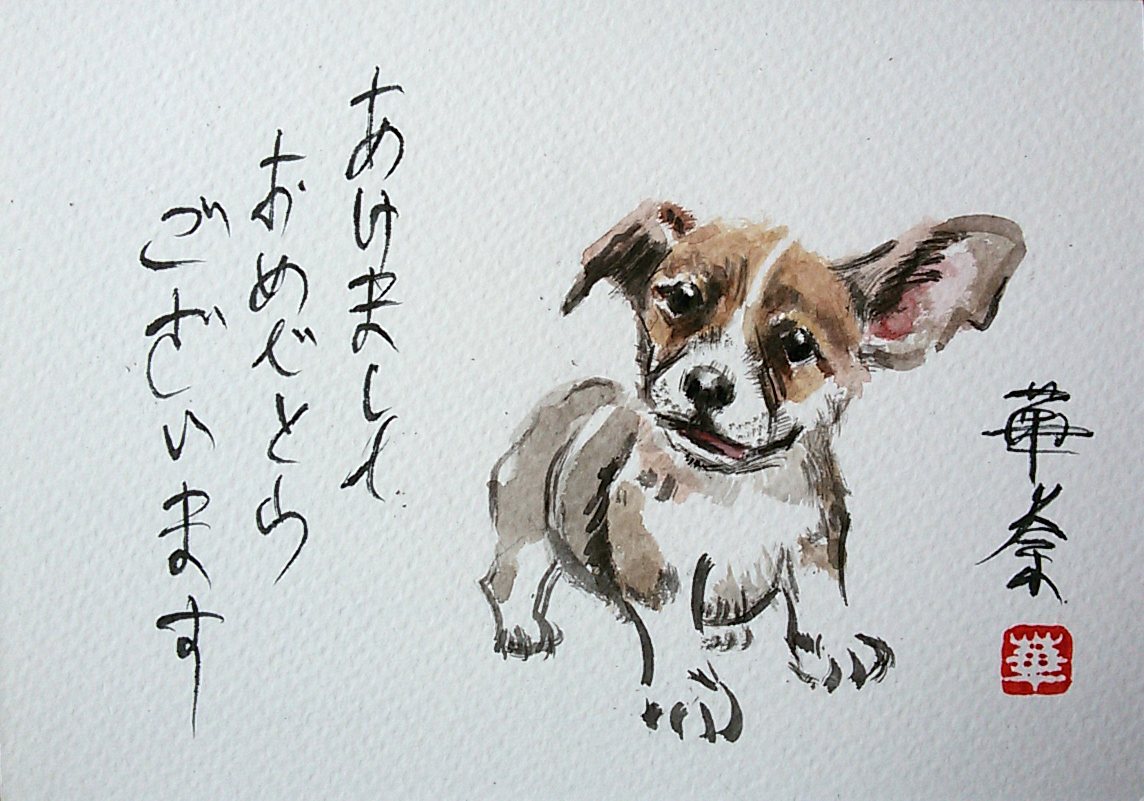 あけまして
おめでとう
ございます
華奈
華